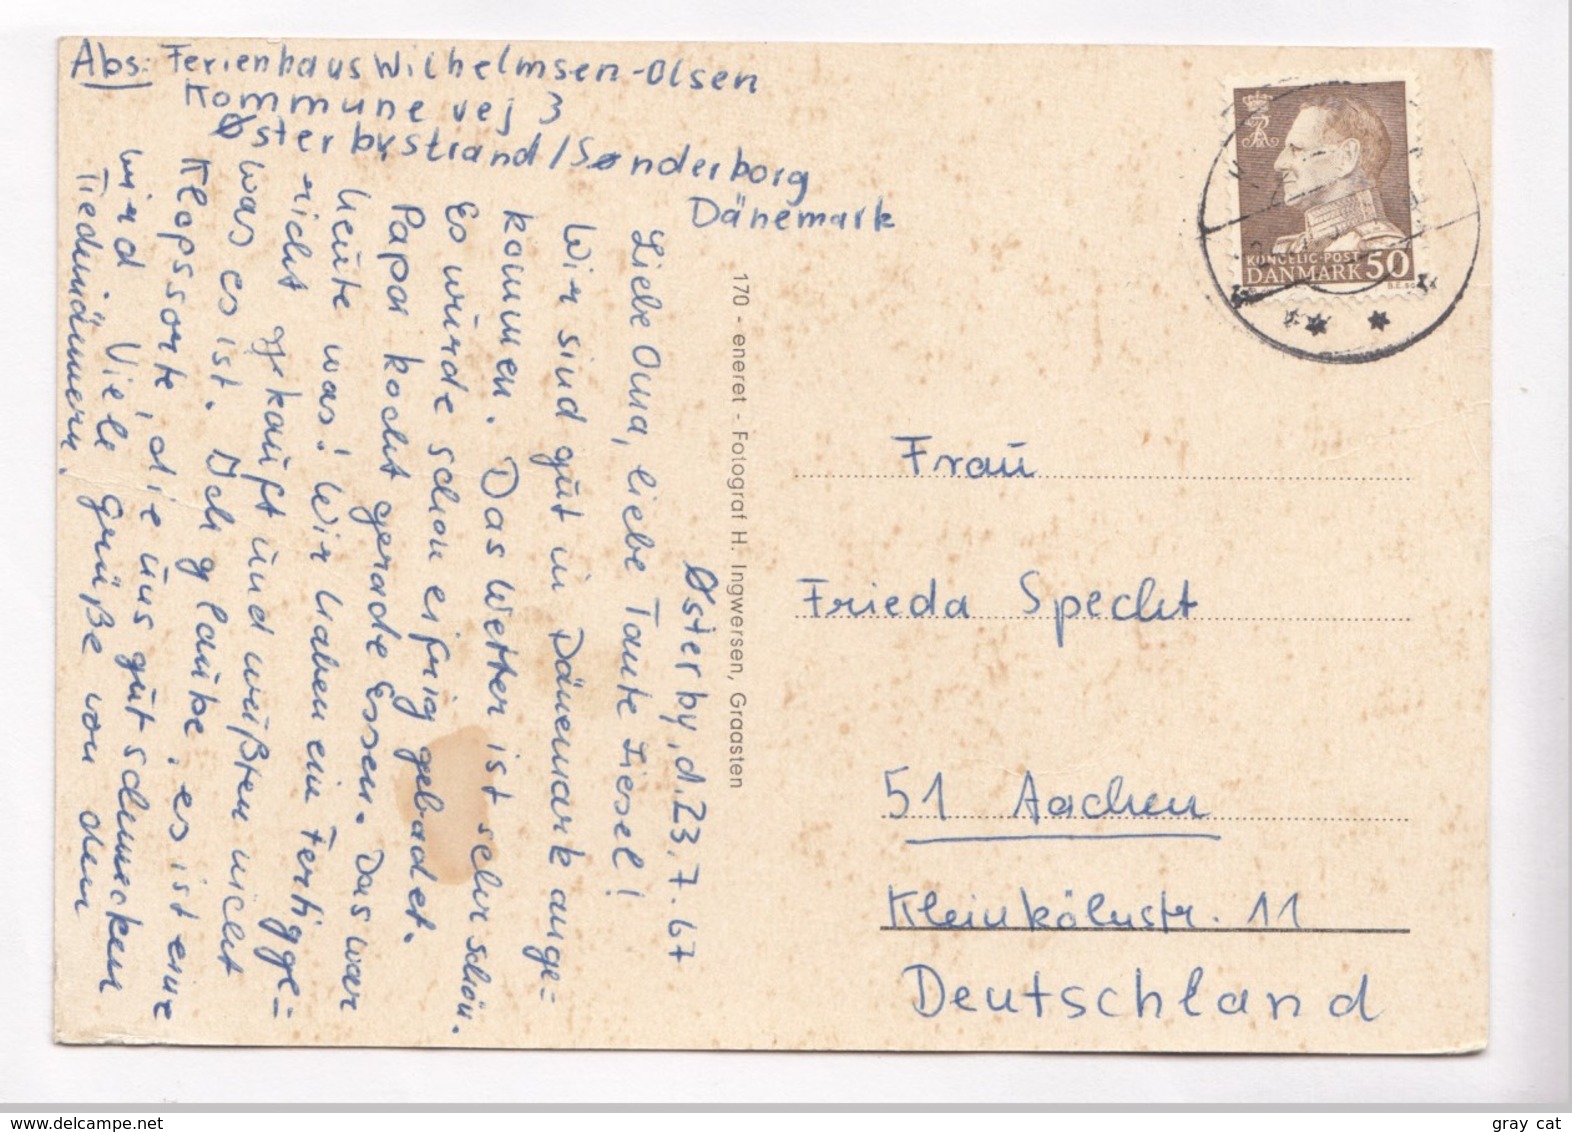 Abs: Ferienhaus Wilhelmsen-Olsen
Kommune vej 3
Østerbystrand/Sønderborg
Dänemark
Østerby, d. 23.7.67
Liebe Oma, liebe Tante Liesel!
Wir sind gut in Dänemark ange=
kommen. Das Wetter ist sehr schön.
Es würde schon eifrig gebadet.
Papa kocht gerade Essen. Das war
heute was! Wir haben ein Fertigge=
richt gekauft und wußten nicht
was es ist. Ich glaube, es ist eine
Klopssorte, die uns gut schmecken
wird Viele Grüße von den
Tiedumännern.
170 - eneret - Fotograf H. Ingwersen, Graasten
KONGELIG·POST
DANMARK 50
Frau
Frieda Specht
51 Aachen
Kleinkölnstr. 11
Deutschland
www.delcampe.net
gray cat